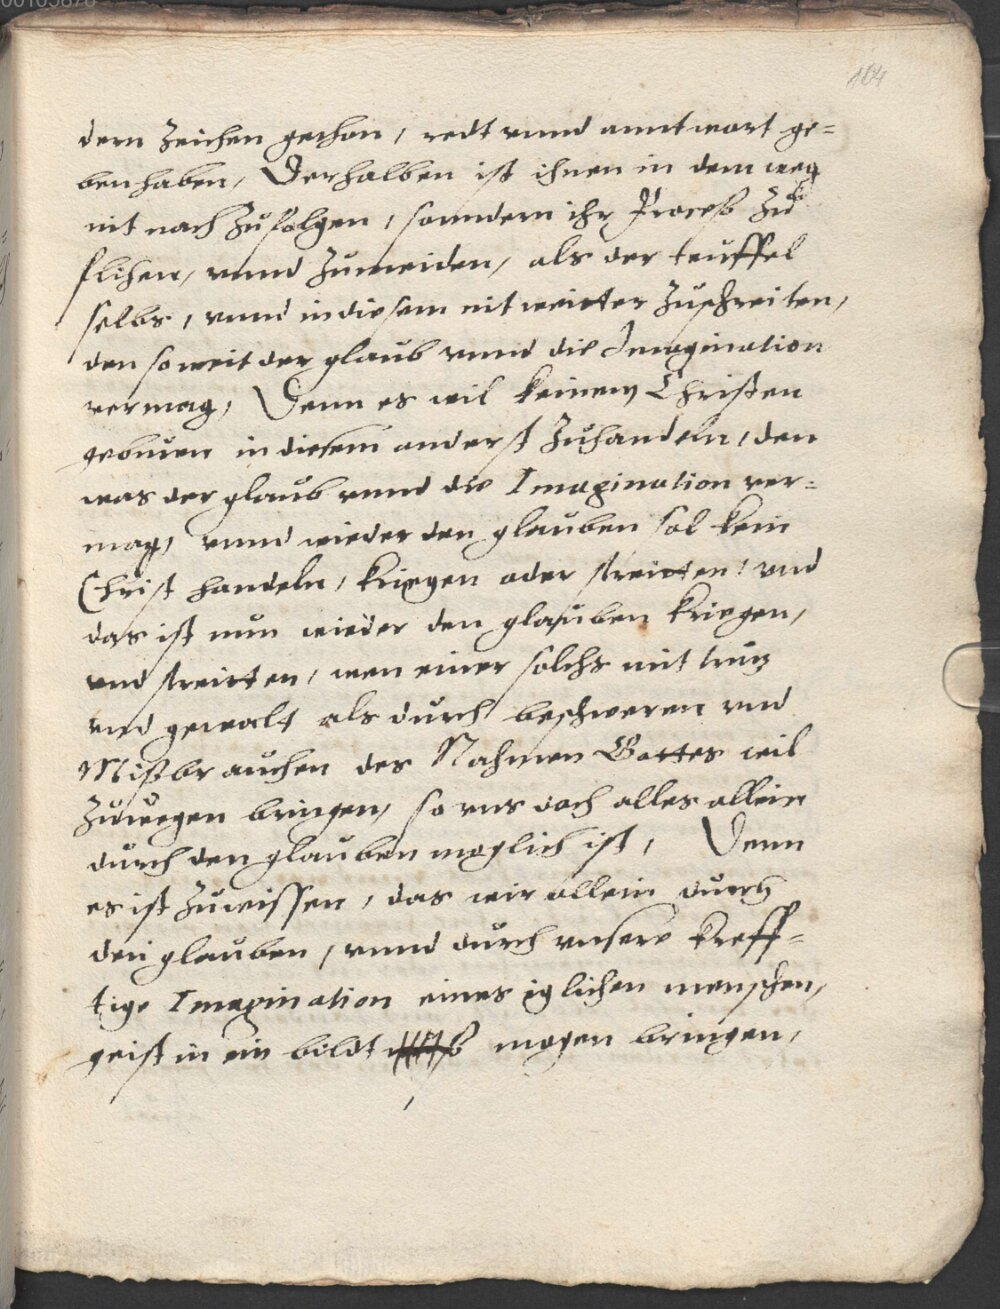 00105878
164
dern zeichen gethon, redt vnnd anntwort ge=
ben haben, Derhalben ist ihnen in dem weg
nit nach zufolgen, sonndern ihr Proceß zu
flihen, vnnd zumeiden, als der teuffel
selbs, vnnd in diesem nit weitter zuschreiten,
den so weit der glaub vnnd die Imagination
vermag, Denn es wil keinem Christen
geburen in diesem anderst zuhandeln, den
was der glaub vnnd die Imagination ver=
mag, vnnd wieder den glauben sol kein
Christ handeln, kriegen oder streitten, vnd
das ist nun wieder den glauben kriegen,
vnd streitten, wen einer solchs mit trutz
vnd gewalt als durch beschweren vnd
Mißbrauchen des Nahmen Gottes wil
zuwegen bringen, so vns doch alles allein
durch den glauben moglich ist, Denn
es ist zuwissen, das wir allein durch
den glauben, vnnd durch vnsere kreff=
tige Imagination eines iglichen menschen,
geist in ein bildt mogen bringen,